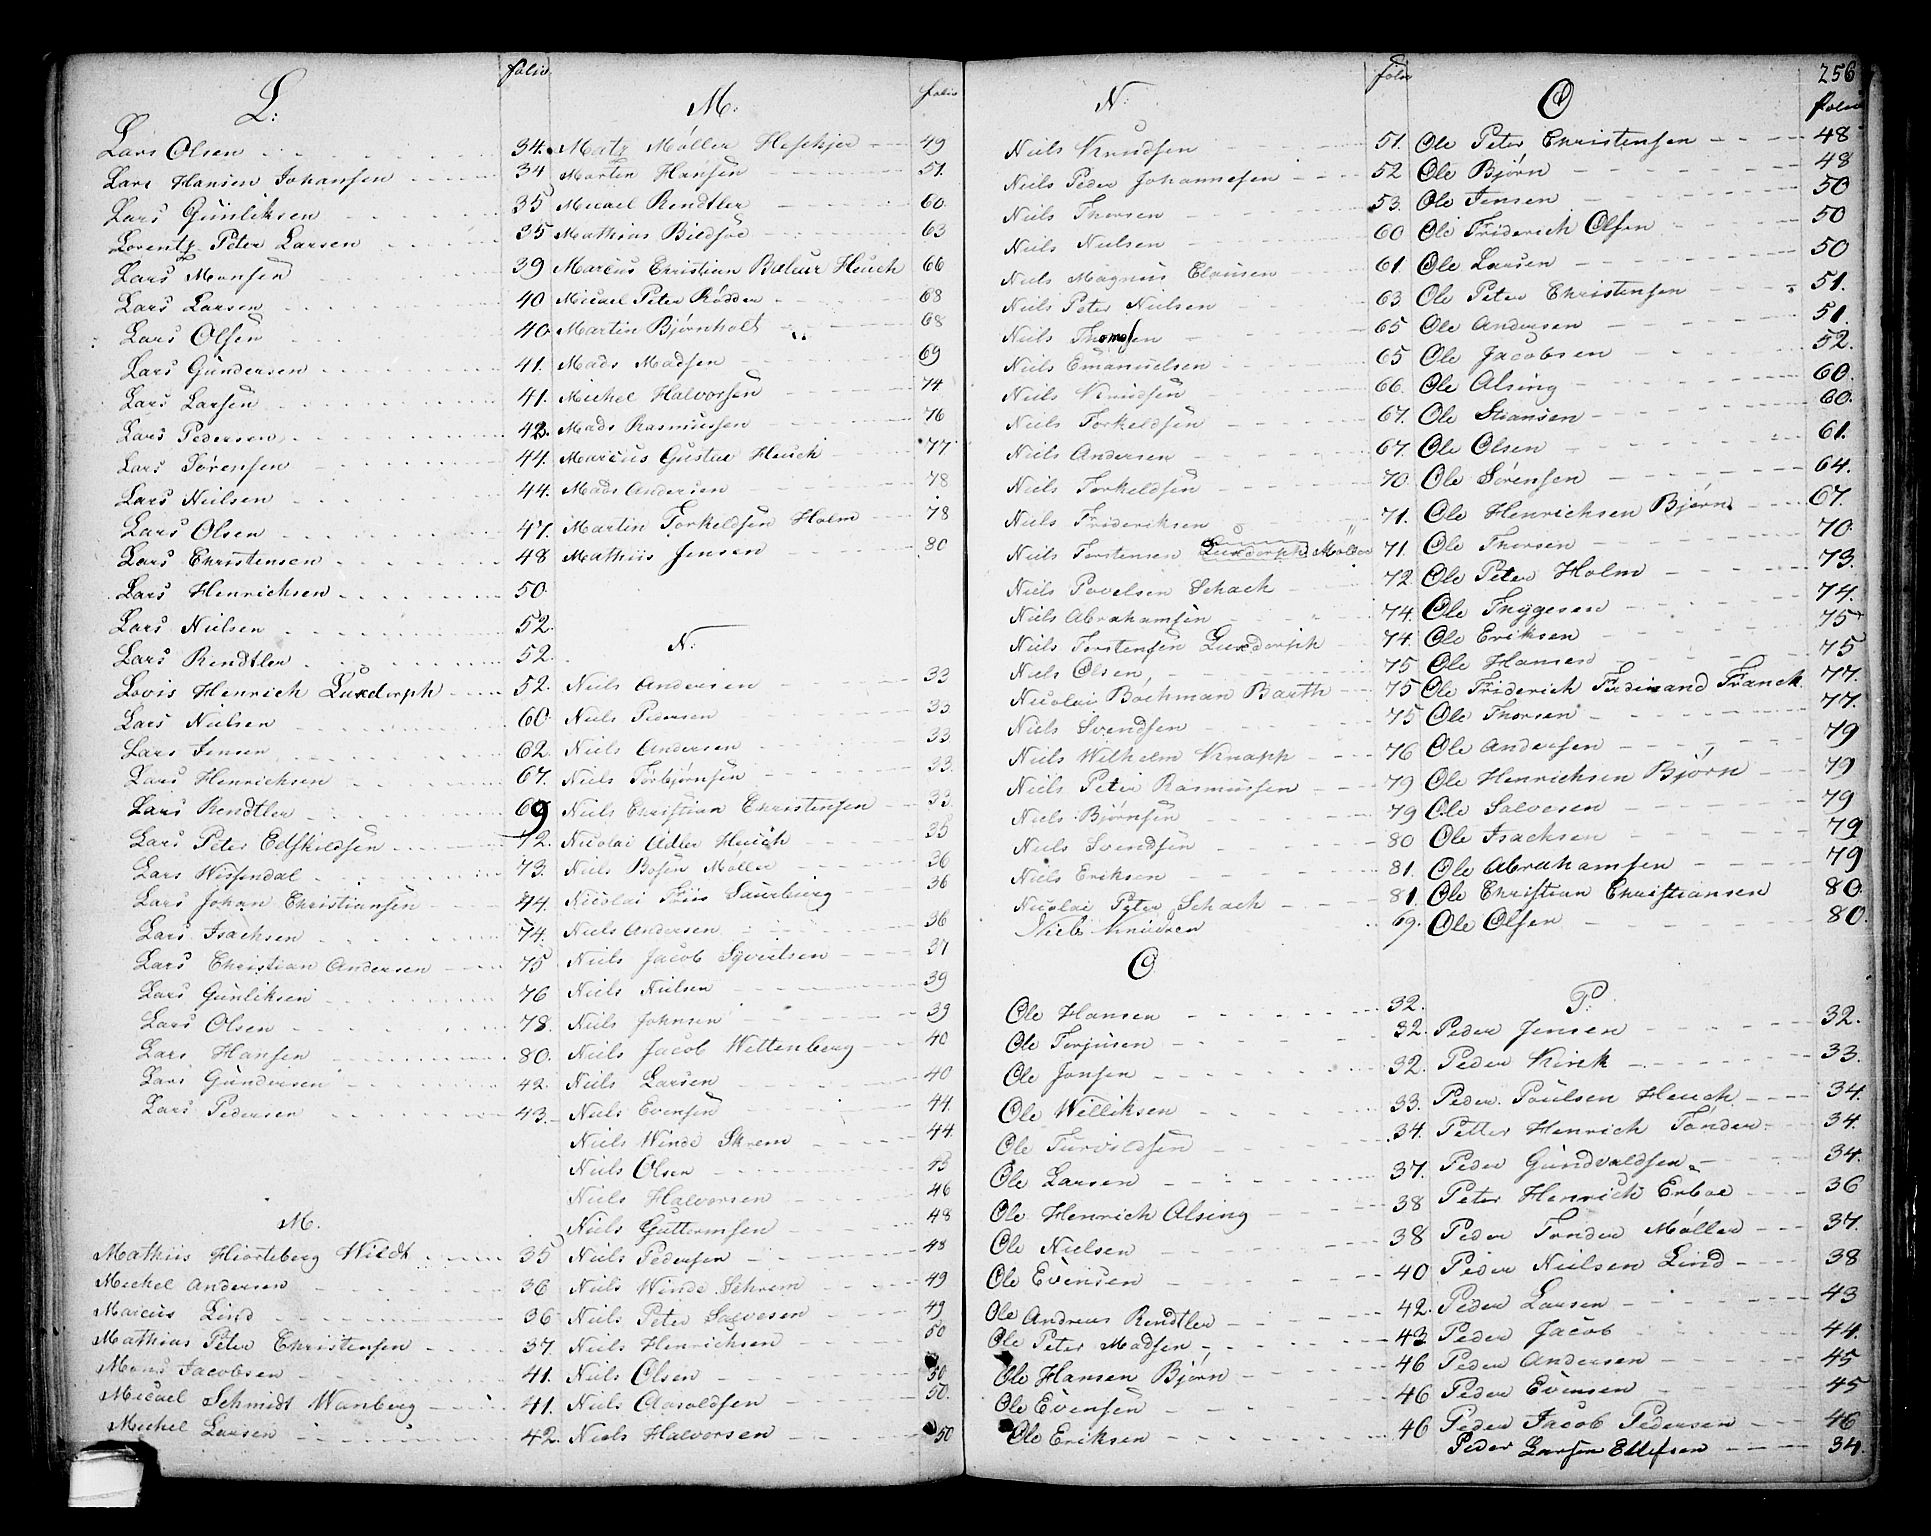 256
L:
folio
Lars Olsen 34.
Lars Hansen Johansen 34
Lars Gunliksen 35
Lorentz Peter Larsen 35
Lars Monsen 39
Lars Larsen 40
Lars Olsen 40
Lars Gundersen 41.
Lars Larsen 41.
Lars Pedersen 43.
Lars Sørensen 44.
Lars Nielsen 44.
Lars Olsen 47.
Lars Christensen 48
Lars Henrichsen 50
Lars Nielsen 52
Lars Rendtler 52
Lovis Henrich Lundorph 52.
Lars Nielsen 60
Lars Jensen 62.
Lars Henrichsen 67.
Lars Rendtler 69
Lars Peter Edskildsen 72.
Lars Wissendal 73.
Lars Johan Christiansen 74.
Lars Isachsen 74.
Lars Christian Andersen 75
Lars Gunliksen 76
Lars Olsen 78.
Lars Hansen 80.
Lars Gundersen 42.
Lars Pedersen 43.
M.
Mathiis Hiorteberg Wildt 35
Michel Andersen 36
Marcus Lind 36
Mathias Peter Christensen 37.
Mons Jacobsen 41.
Micael Schmidt Wanberg 41.
Michel Larsen 42.
M:
folio
Matz Møller Heskjer 49
Morten Hansen 51.
Micael Rendtler 60
Mathias Biedsøe 63
Marcus Christian Heuch 66
Micael Peter Rødder 68
Martin Bjørnholt 68
Mads Madsen 69
Michel Halvorsen 74
Mads Rasmussen 76
Marcus Gustav Heuch 77
Mads Andersen 78
Martin Torkeldsen Holm 78
Mathiis Jensen 80
N:
Niels Andersen 33
Niels Pedersen 33
Niels Andersen 33
Niels Torbjørnsen 33.
Niels Christian Christensen 33
Nicolai Adler Heuch 35
Niels Bosen Møller 36
Nicolai Friis Saurberg 36
Niels Andersen 36
Niels Jacob Syvertsen 37
Niels Nielsen 39
Niels Johnsen 39
Niels Jacob Wettenberg 40
Niels Larsen 40
Niels Evensen 44.
Niels Winde Skrem 44.
Niels Olsen 45
Niels Halvorsen 46
Niels Guttermsen 48
Niels Pedersen 48
Niels Winde Schrem 49
Niels Peter Salvesen 49
Niels Henrichsen 50
Niels Olsen 50
Niels Aaroldsen 50.
Niels Halvorsen 50
N:
folio
Niels Knudsen 51.
Niels Peder Johannesen 52
Niels Thorsen 53.
Niels Nielsen 60
Niels Magnus Clausen 61.
Niels Peter Nielsen 63
Niels Thomsen 65
Niels Emanuelsen 65
Niels Knudsen 66.
Niels Torkeldsen 67.
Niels Andersen 67.
Niels Torkeldsen 70
Niels Frideriksen 71.
Niels Torstensen Lundorph Møller 71.
Niels Povelsen Schack 72.
Niels Abrahamsen 74.
Niels Torstensen Lundorph 74.
Niels Olsen 75
Nicolai Bochman Barth 75
Niels Svendsen 75
Niels Wilhelm Knapp 76
Niels Peter Rasmussen 79
Niels Bjørnsen 79
Niels Svendsen 80
Niels Eriksen 81.
Nicolai Peter Schack 81.
Niels Knudsen 69.
O
Ole Hansen 32.
Ole Terjusen 32.
Ole Jonsen 32.
Ole Williksen 33.
Ole Turvildsen 34.
Ole Larsen 37.
Ole Henrich Alsing 38
Ole Nielsen 38
Ole Evensen 40
Ole Andreas Rendtler 42.
Ole Peter Madsen 43
Ole Hansen Bjørn 46
Ole Evensen 46
Ole Eriksen 46
O
folio
Ole Peter Christensen 48
Ole Bjørn 48
Ole Jensen 50
Ole Friderich Olsen 50
Ole Larsen 50
Ole Peter Christensen 51.
Ole Andersen 51.
Ole Jacobsen 52.
Ole Alsing 60.
Ole Stiansen 60.
Ole Olsen 61.
Ole Sørensen 64.
Ole Henrichsen Bjørn 67.
Ole Thorsen 70
Ole Peter Holm 73.
Ole Thygesen 74.
Ole Eriksen 75
Ole Hansen 75
Ole Friderich Ferdinand Franck 77.
Ole Thorsen 77.
Ole Andersen 79
Ole Henrichsen Bjørn 79
Ole Salvesen 79
Ole Isachsen 79
Ole Abrahamsen 79
Ole Christian Christiansen 80
Ole Olsen 80.
P:
Peder Jensen 32.
Peder Kirk 33.
Peder Poulsen Heuch 34.
Petter Henrich Tønder 34.
Peder Gundvaldsen 34.
Peter Henrich Erboe 36
Peder Tonder Møller 37.
Peder Nielsen Lind 38
Peder Larsen 43
Peder Jacob 44.
Peder Andersen 45
Peder Evensen 45
Peder Jacob Pedersen 46
Peder Larsen Ellefsen 34.